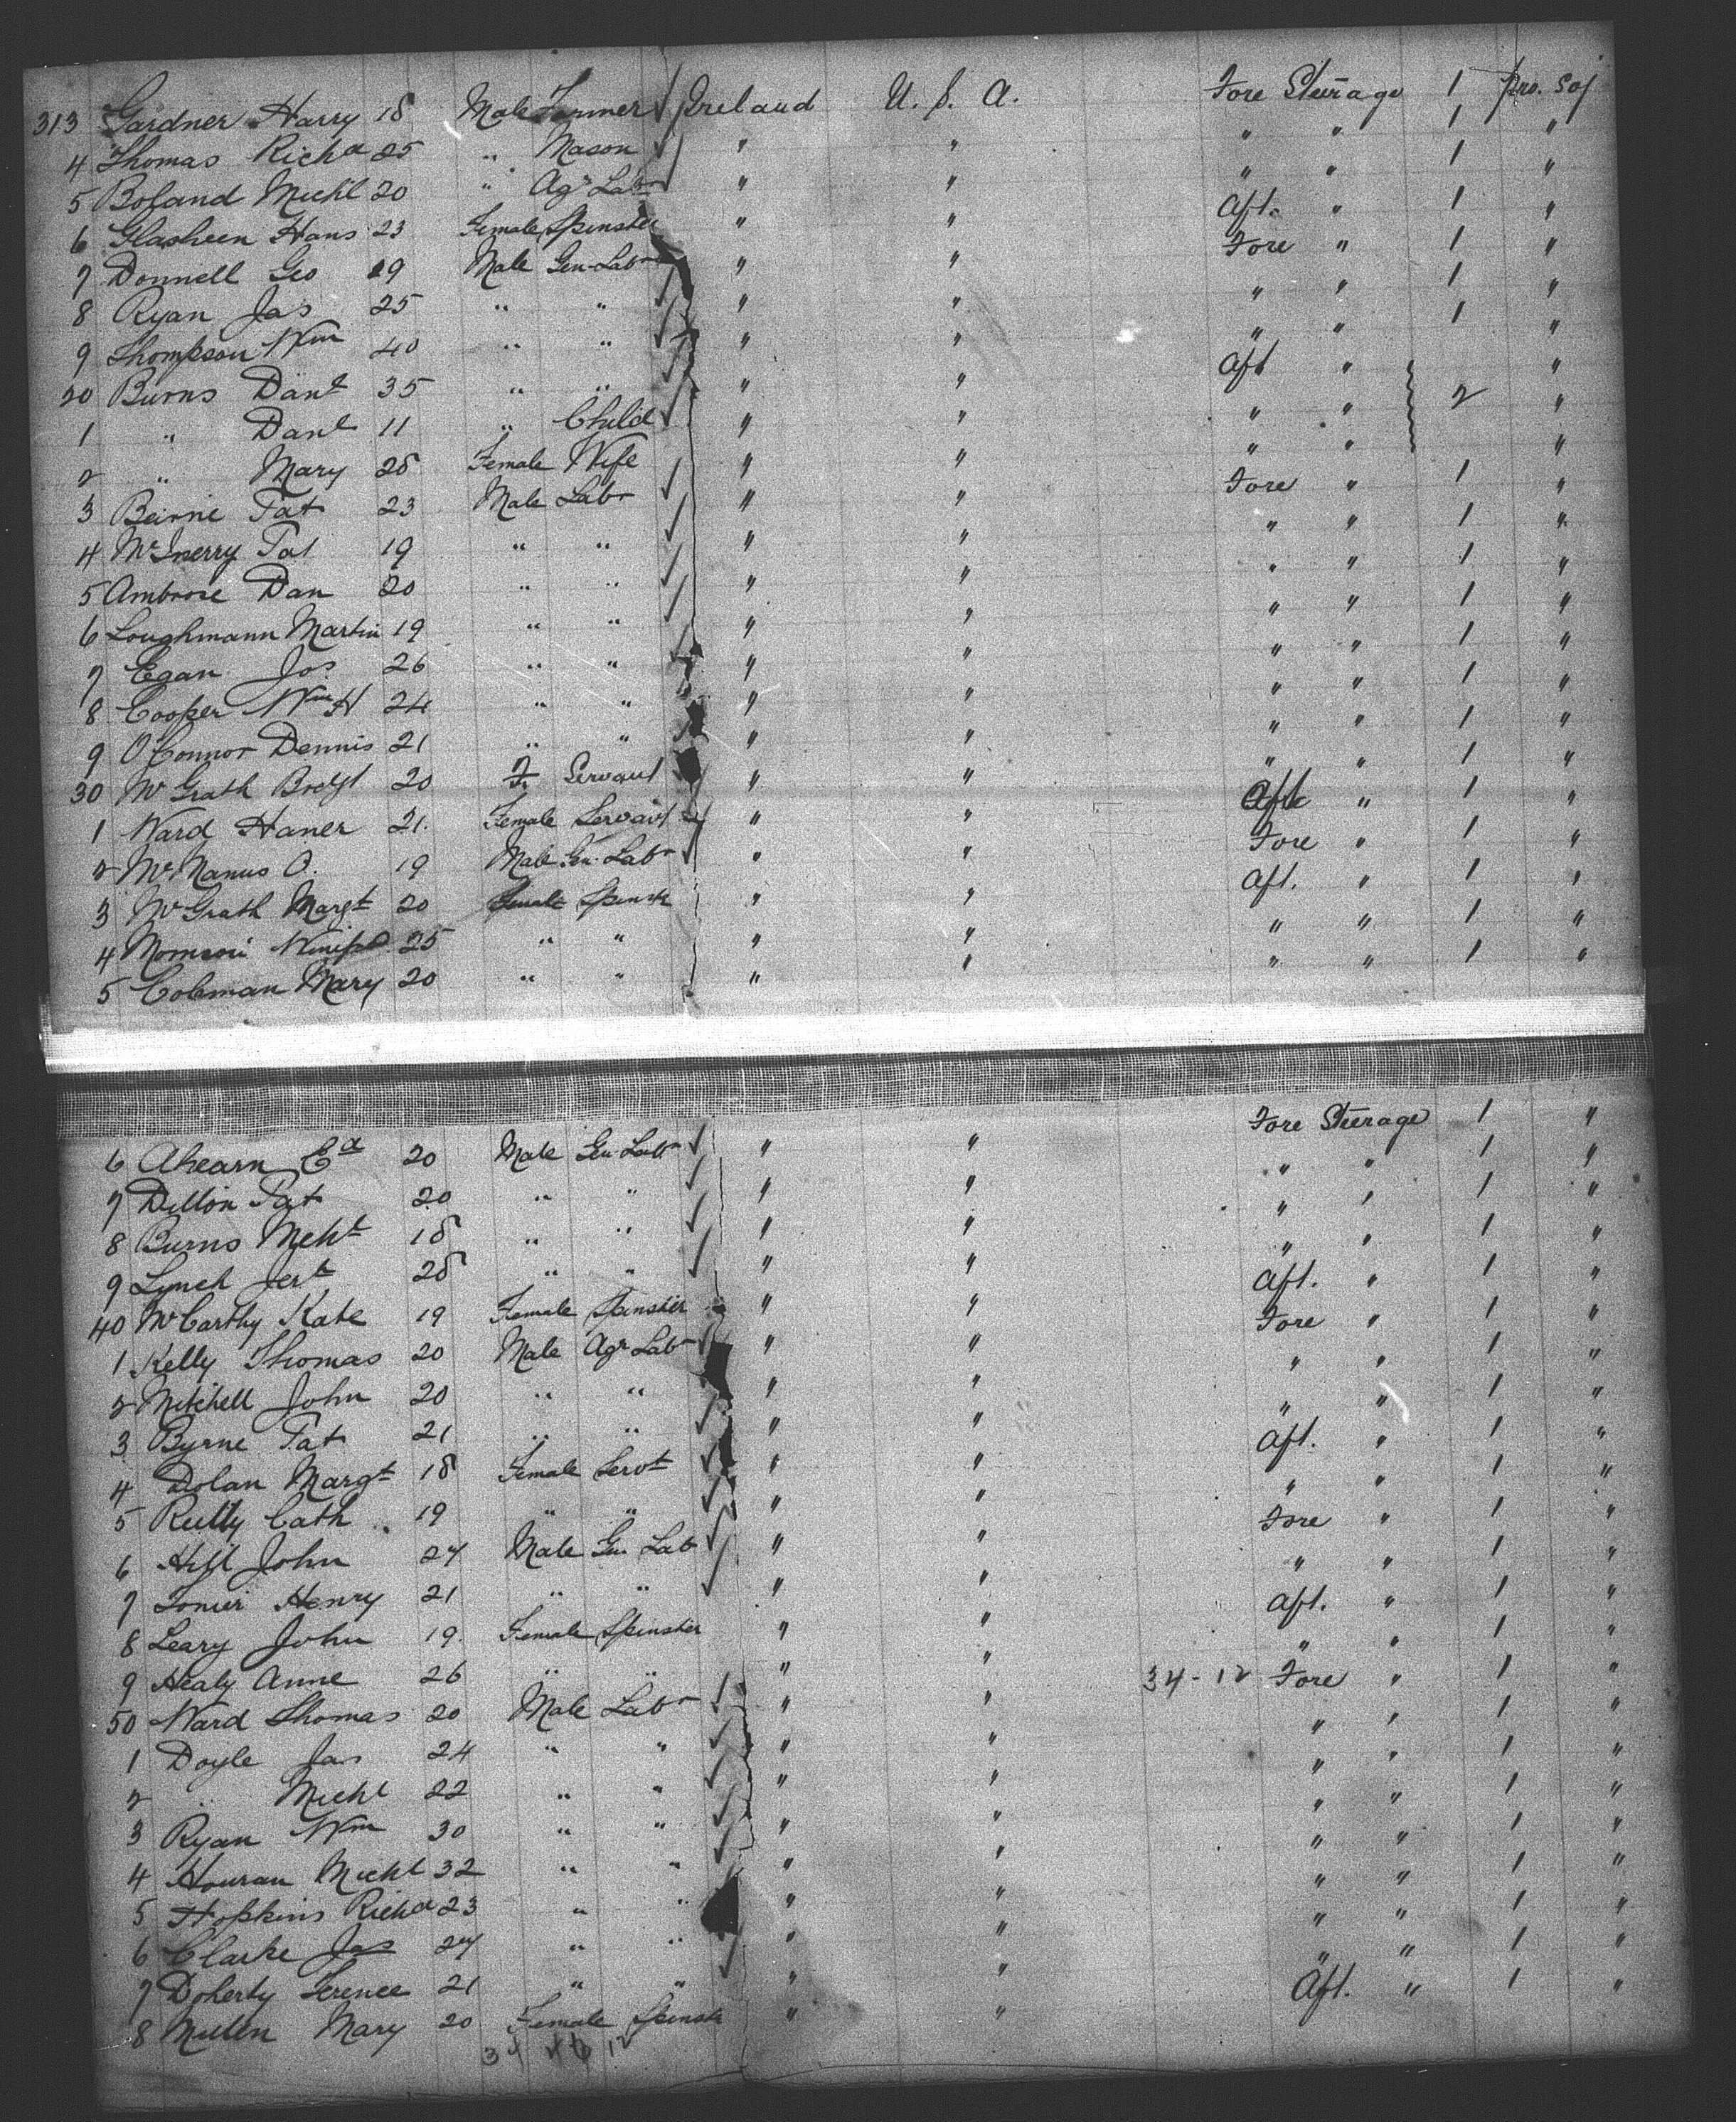 313 Gardner Harry 18 Male Farmer ✓ Ireland U. S. A. Fore Steerage 1 Pro. Soj
4 Thomas Richd 25 " Mason ✓ " " " " 1 "
5 Boland Michl 20 " Agr Labr ✓ " " " " 1 "
6 Glasheen Hans 23 Female Spinster " " Aft. " 1 "
7 Donnell Geo 19 Male Gen Labr " " Fore " 1 "
8 Ryan Jas 25 " " ✓ " " " " 1 "
9 Thompson Wm 40 " " ✓ " " " " 1 "
20 Burns Danl 35 " " ✓ " " Aft " "
1 " Danl 11 " Child ✓ " " " " 2 "
2 " Mary 25 Female Wife " " " " "
3 Beirne Pat 23 Male Labr ✓ " " Fore " 1 "
4 McInerry Pat 19 " " ✓ " " " " 1 "
5 Ambrose Dan 20 " " ✓ " " " " 1 "
6 Loughmann Martin 19 " " ✓ " " " " 1 "
7 Egan Jos 26 " " ✓ " " " " 1 "
8 Cooper Wm H 24 " " " " " " 1 "
9 O'Connor Dennis 21 " " ✓ " " " " 1 "
30 McGrath Bredgt 20 F. Servant ✓ " " " " 1 "
1 Ward Haner 21 Female Servant ✓ " " Aft " 1 "
2 McManus O. 19 Male Gen. Labr ✓ " " Fore " 1 "
3 McGrath Margt 20 Female Spinstr " " Aft. " 1 "
4 25 " " " " " " 1 "
5 Coleman Mary 20 " " " " " " 1 "
6 Ahearn Ed 20 Male Gen Labr ✓ " " Fore Steerage 1 "
7 Dillon Pat 20 " " ✓ " " " " 1 "
8 Burns Mcht 18 " " ✓ " " " " 1 "
9 Lynch Jerh 28 " " ✓ " " " " 1 "
40 McCarthy Kate 19 Female Spinster " " Aft. " 1 "
1 Kelly Thomas 20 Male Agr Labr ✓ " " Fore " 1 "
2 Mitchell John 20 " " ✓ " " " " 1 "
3 Byrne Pat 21 " " ✓ " " " " 1 "
4 Dolan Margt 18 Female Servt ✓ " " Aft. " 1 "
5 Reilly Cath 19 " " ✓ " " " " 1 "
6 Hill John 24 Male Gen Lab ✓ " " Fore " 1 "
7 Henry 21 " " ✓ " " " " 1 "
8 Leary John 19 Female Spinster " " Aft. " 1 "
9 Healy Anne 26 " " " " " " 1 "
50 Ward Thomas 20 Male Labr ✓ " " 34 - 12 Fore " 1 "
1 Doyle Jas 24 " " ✓ " " " " 1 "
2 " Michl 22 " " ✓ " " " " 1 "
3 Ryan Wm 30 " " ✓ " " " " 1 "
4 Houran Michl 32 " " ✓ " " " " 1 "
5 Hopkins Richd 23 " " " " " " 1 "
6 Clarke Jas 24 " " ✓ " " " " 1 "
7 Doherty Terence 21 " " ✓ " " " " 1 "
8 Mullen Mary 20 Female Spinstr " " Aft. " 1 "
34 46 12